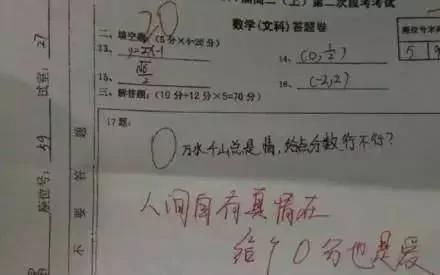 20
高二(上)第二次段考考试
数学(文科)答题卷
二、填空题:(5分×4=20分)
13、y=2x-1
14、(0,1/2)
15、√6/2
16、(-2,2)
三、解答题:(10分+12分×5=70分)
17题:
0
万水千山总是情,给点分数行不行?
人间自有真情在
给个0分也是爱
试室:27
座位号:59
不要答题
座位号
5